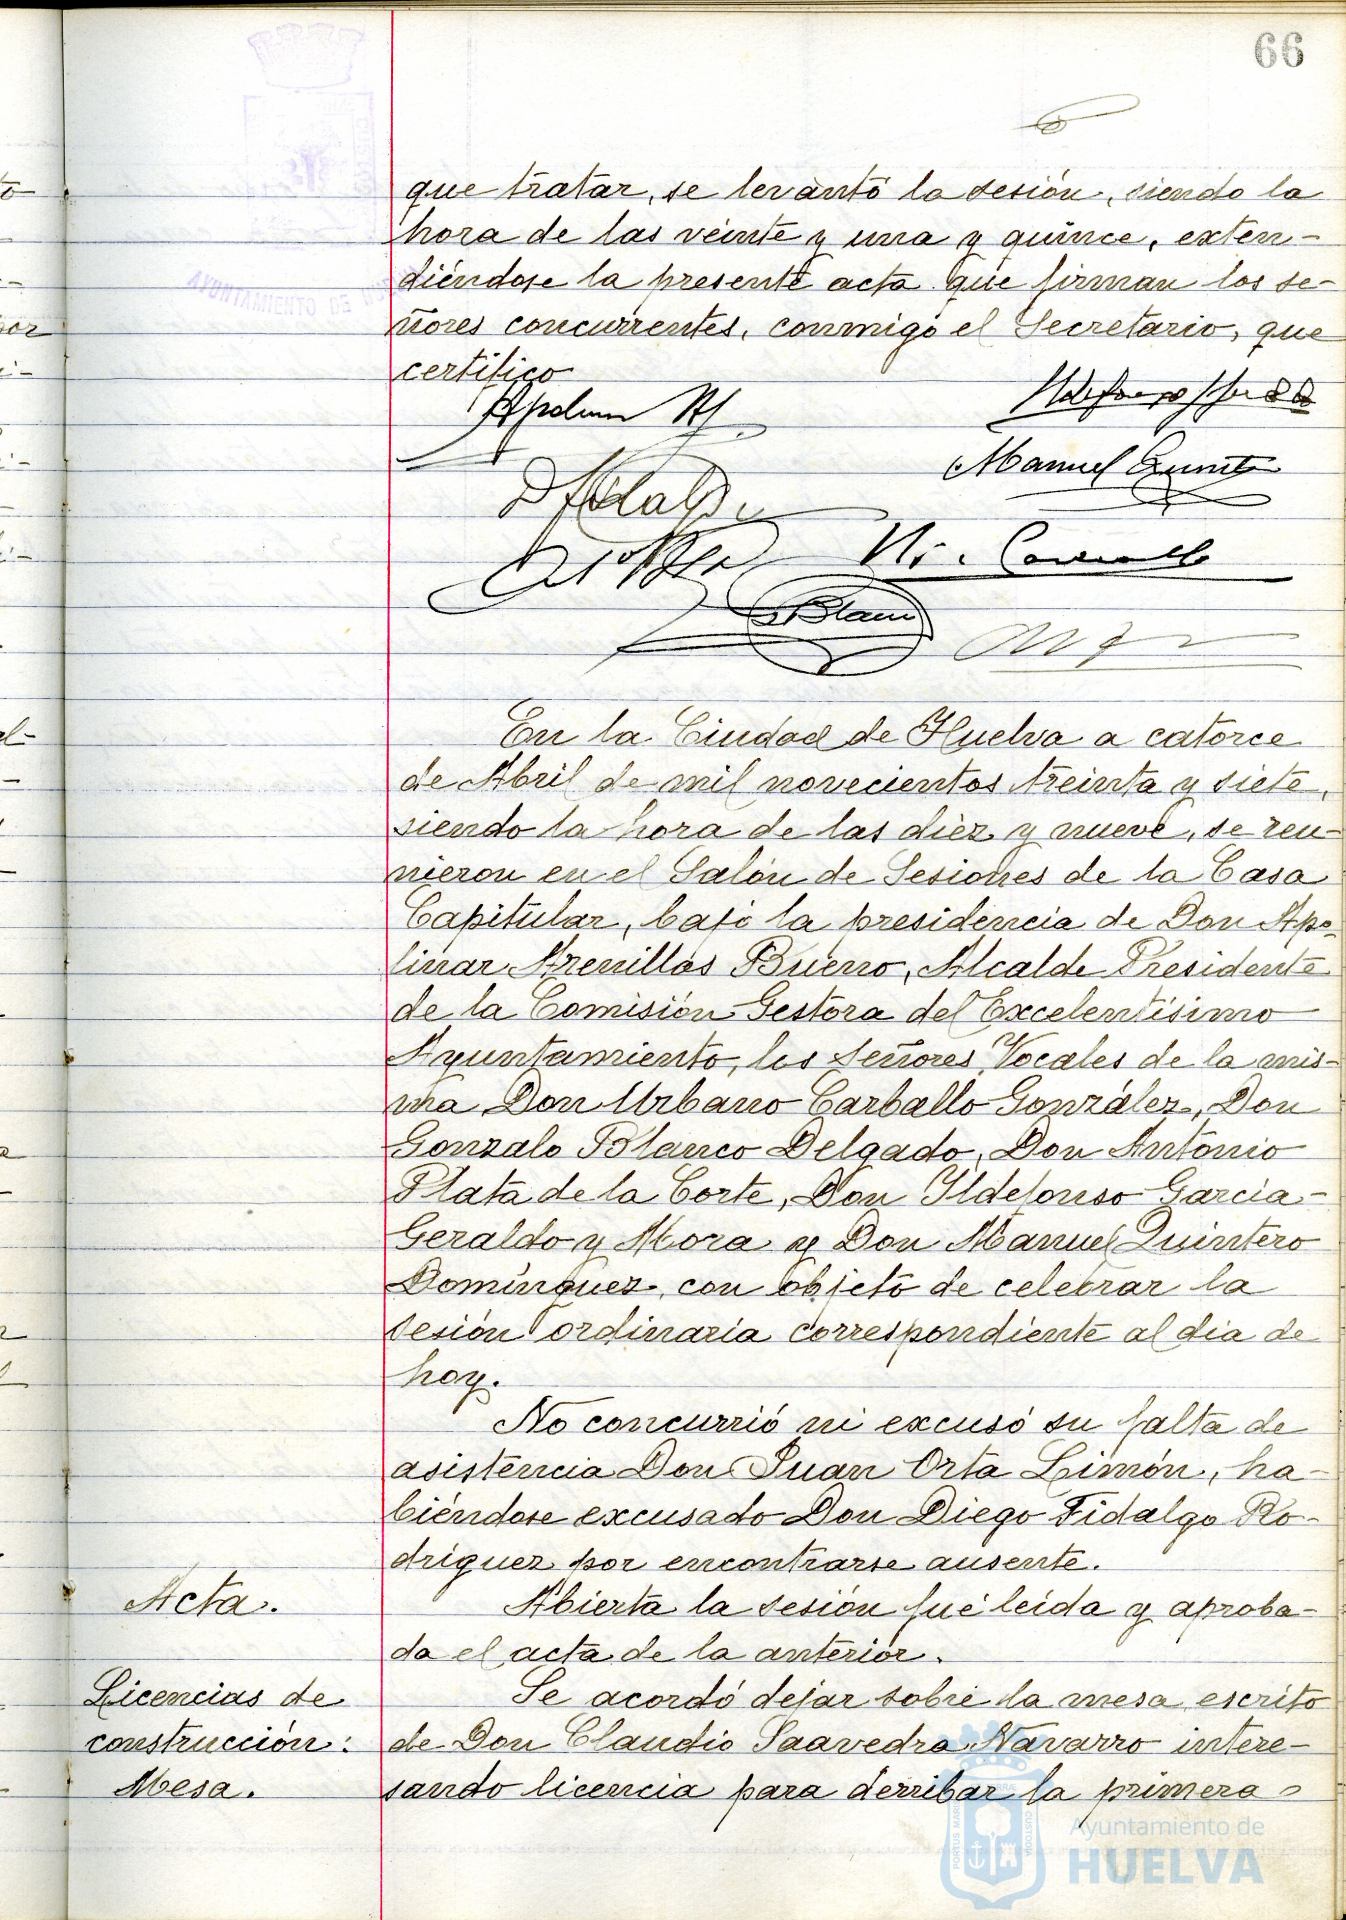 66
que tratar, se levantó la sesión, siendo la
hora de las veinte y una y quince, exten-
diéndose la presente acta que firman los se-
ñores concurrentes, conmigo el Secretario, que
certifico
Manuel Quintero
Blanco
AYUNTAMIENTO DE
En la Ciudad de Huelva a catorce
de Abril de mil novecientos treinta y siete,
siendo la hora de las diez y nueve, se reu-
nieron en el Salón de Sesiones de la Casa
Capitular, bajo la presidencia de Don Apo-
linar Arenillas Bueno, Alcalde Presidente
de la Comisión Gestora del Excelentísimo
Ayuntamiento, los Señores Vocales de la mis-
ma Don Urbano Carballo González, Don
Gonzalo Blanco Delgado, Don Antonio
Plata de la Corte, Don Ildefonso García-
Geraldo y Mora y Don Manuel Quintero
Domínguez, con objeto de celebrar la
sesión ordinaria correspondiente al dia de
hoy.
No concurrió ni excusó su falta de
asistencia Don Juan Orta Limón, ha-
biéndose excusado Don Diego Fidalgo Ro-
driguez por encontrarse ausente.
Acta.
Abierta la sesión fué leida y aproba-
da el acta de la anterior.
Licencias de
construcción:
Mesa.
Se acordó dejar sobre la mesa escrito
de Don Claudio Saavedra Navarro intere-
sando licencia para derribar la primera
Ayuntamiento de
HUELVA